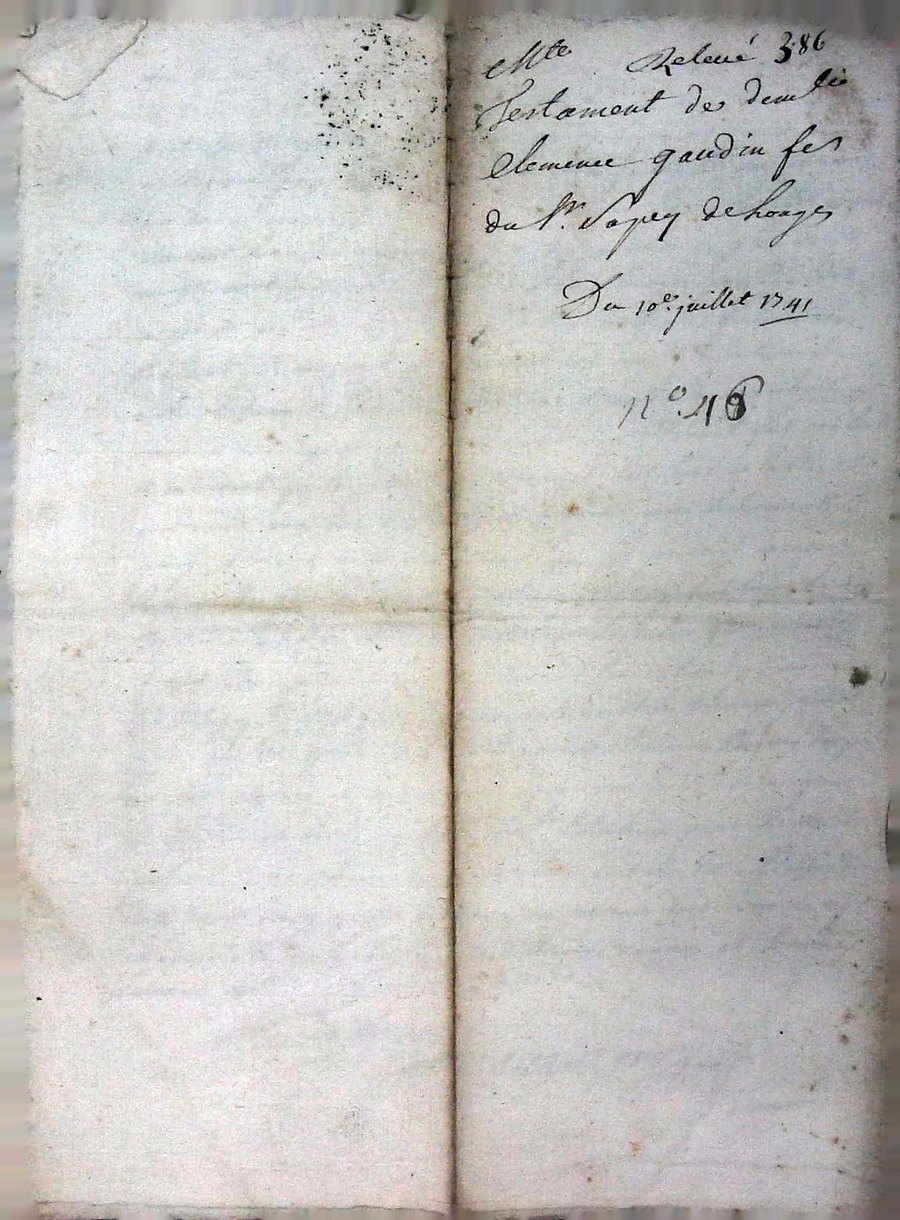 Mte Relevé 386
Testament de demlle
Clemence gaudin fe
du Sr. Sapey de
Du 10e juillet 1741
no. 46